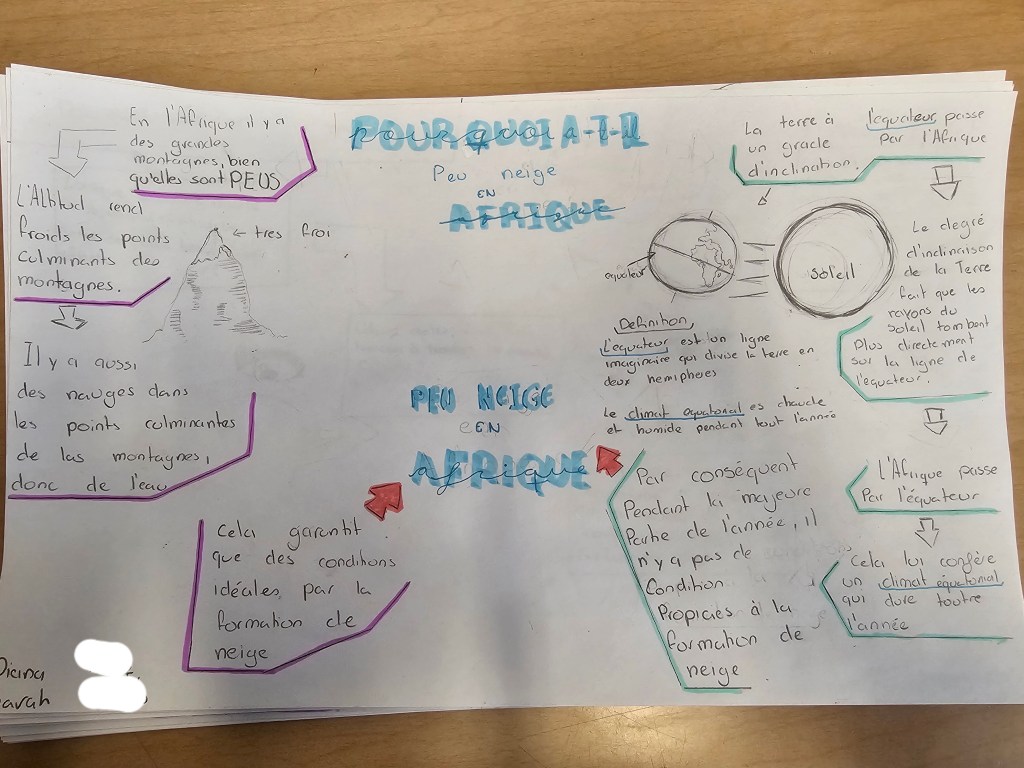 POURQUOI A-T-IL
Peu neige
EN
AFRIQUE
En l'Afrique il y a
des grandes
montagnes, bien
qu'elles sont PEUS
L'Altitud rend
froids les points
culminants des
montagnes.
← tres froi
Il y a aussi
des nauges dans
les points culminantes
de las montagnes,
donc de l'eau
Cela garantit
que des conditions
idéales par la
formation de
neige
PEU NEIGE
EN
AFRIQUE
La terre à
un grade
d'inclination.
l'equateur passe
par l'Afrique
equateur
soleil
Le degré
d'inclinaison
de la Terre
fait que les
rayons du
soleil tombent
Plus directement
sur la ligne de
l'equateur.
Definition
L'equateur est un ligne
imaginaire qui divise la terre en
deux hemipheres
Le climat equatorial es chaude
et humide pendant tout l'année
L'Afrique passe
Par l'équateur
Cela lui confère
un climat équatorial
qui dure toutre
l'année
Par conséquent
Pendant la majeure
Partie de l'année, il
n'y a pas de
Condition
Propraies à la
formation de
neige
Diana
sarah